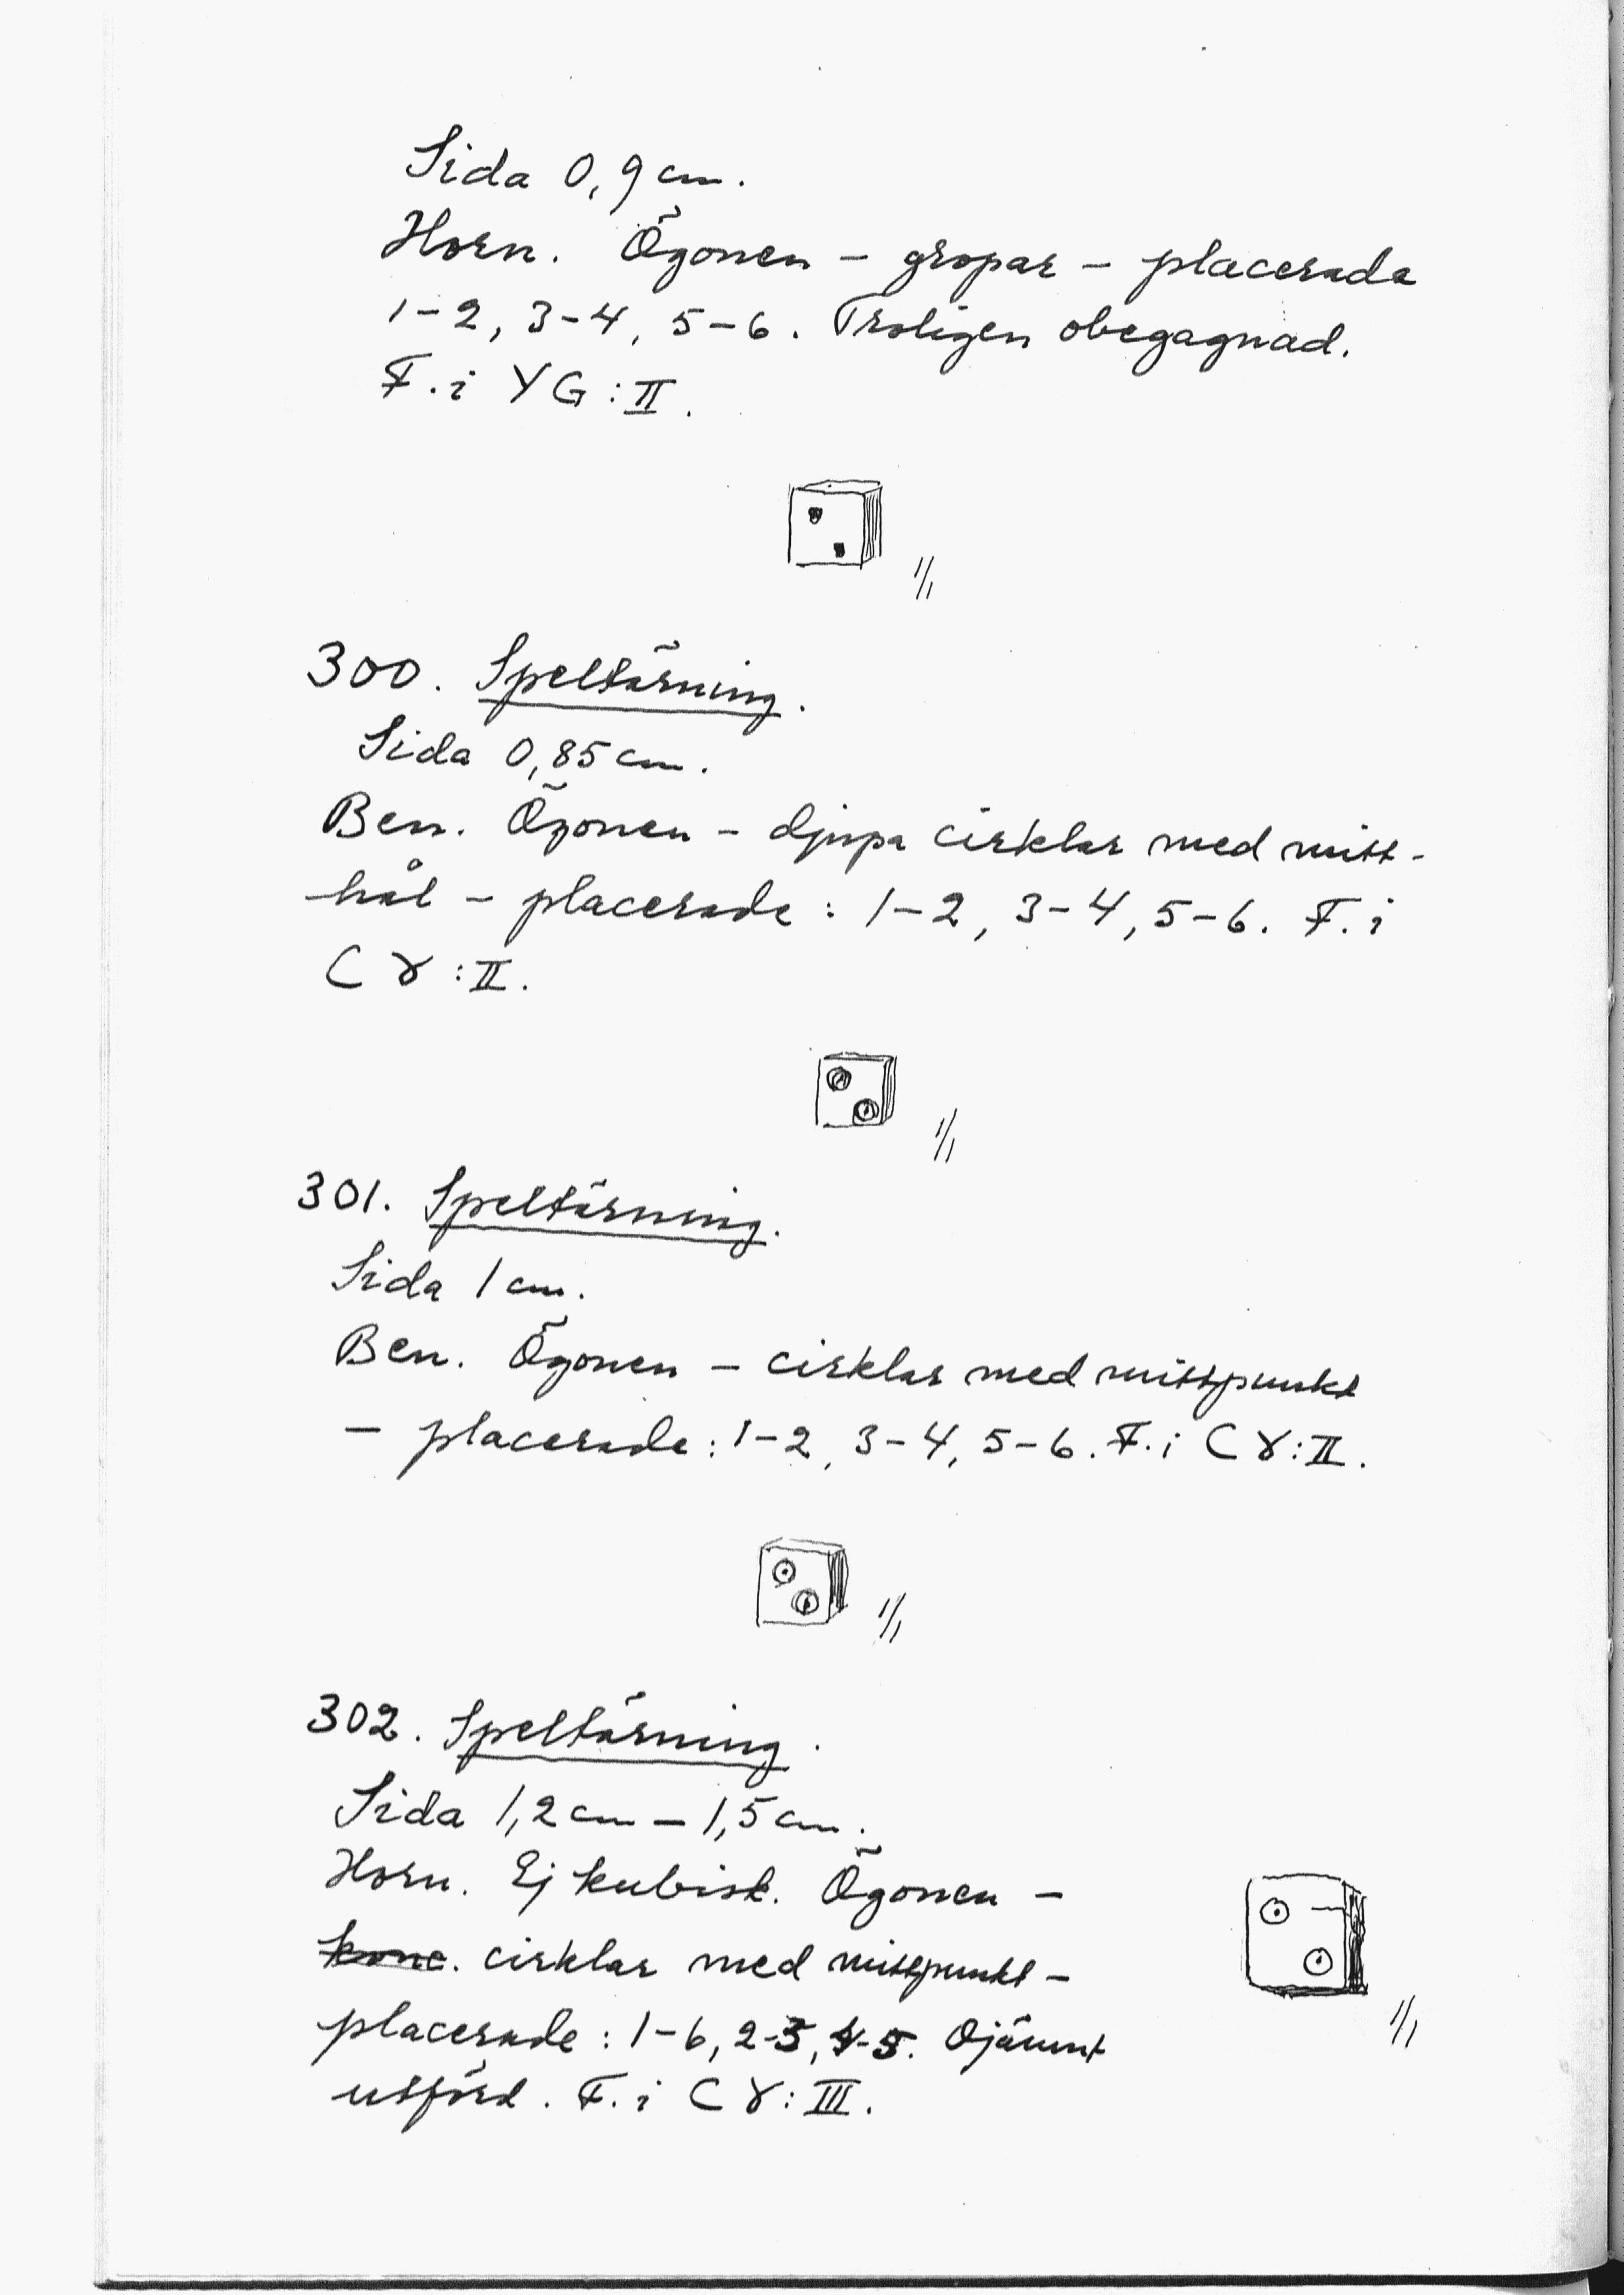 Sida 0,9 cm.
Horn. Ögonen – gropar – placerade
1–2, 3–4, 5–6. Troligen obegagnad.
F. i YG:II.
1/1
300. Speltärning.
Sida 0,85 cm.
Ben. Ögonen – djupa cirklar med mitt-
hål – placerade: 1–2, 3–4, 5–6. F. i
CX:II.
1/1
301. Speltärning.
Sida 1 cm.
Ben. Ögonen – cirklar med mittpunkt
– placerade: 1–2, 3–4, 5–6. F. i CX:II.
1/1
302. Speltärning.
Sida 1,2 cm – 1,5 cm.
Horn. Ej kubisk. Ögonen –
konc. cirklar med mittpunkt –
placerade: 1–6, 2–3, 4–5. Ojämnt
utförd. F. i CX:III.
1/1